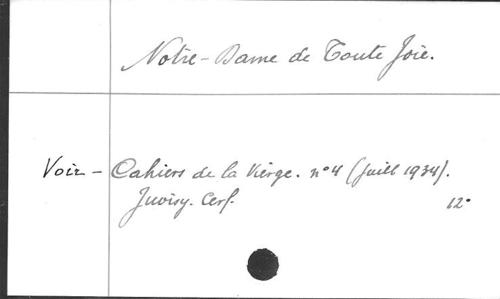 Notre-Dame de Toute Joie.
Voir - Cahiers de la Vierge. n° 4 (Juill 1934).
Juvisy. Cerf. 12°